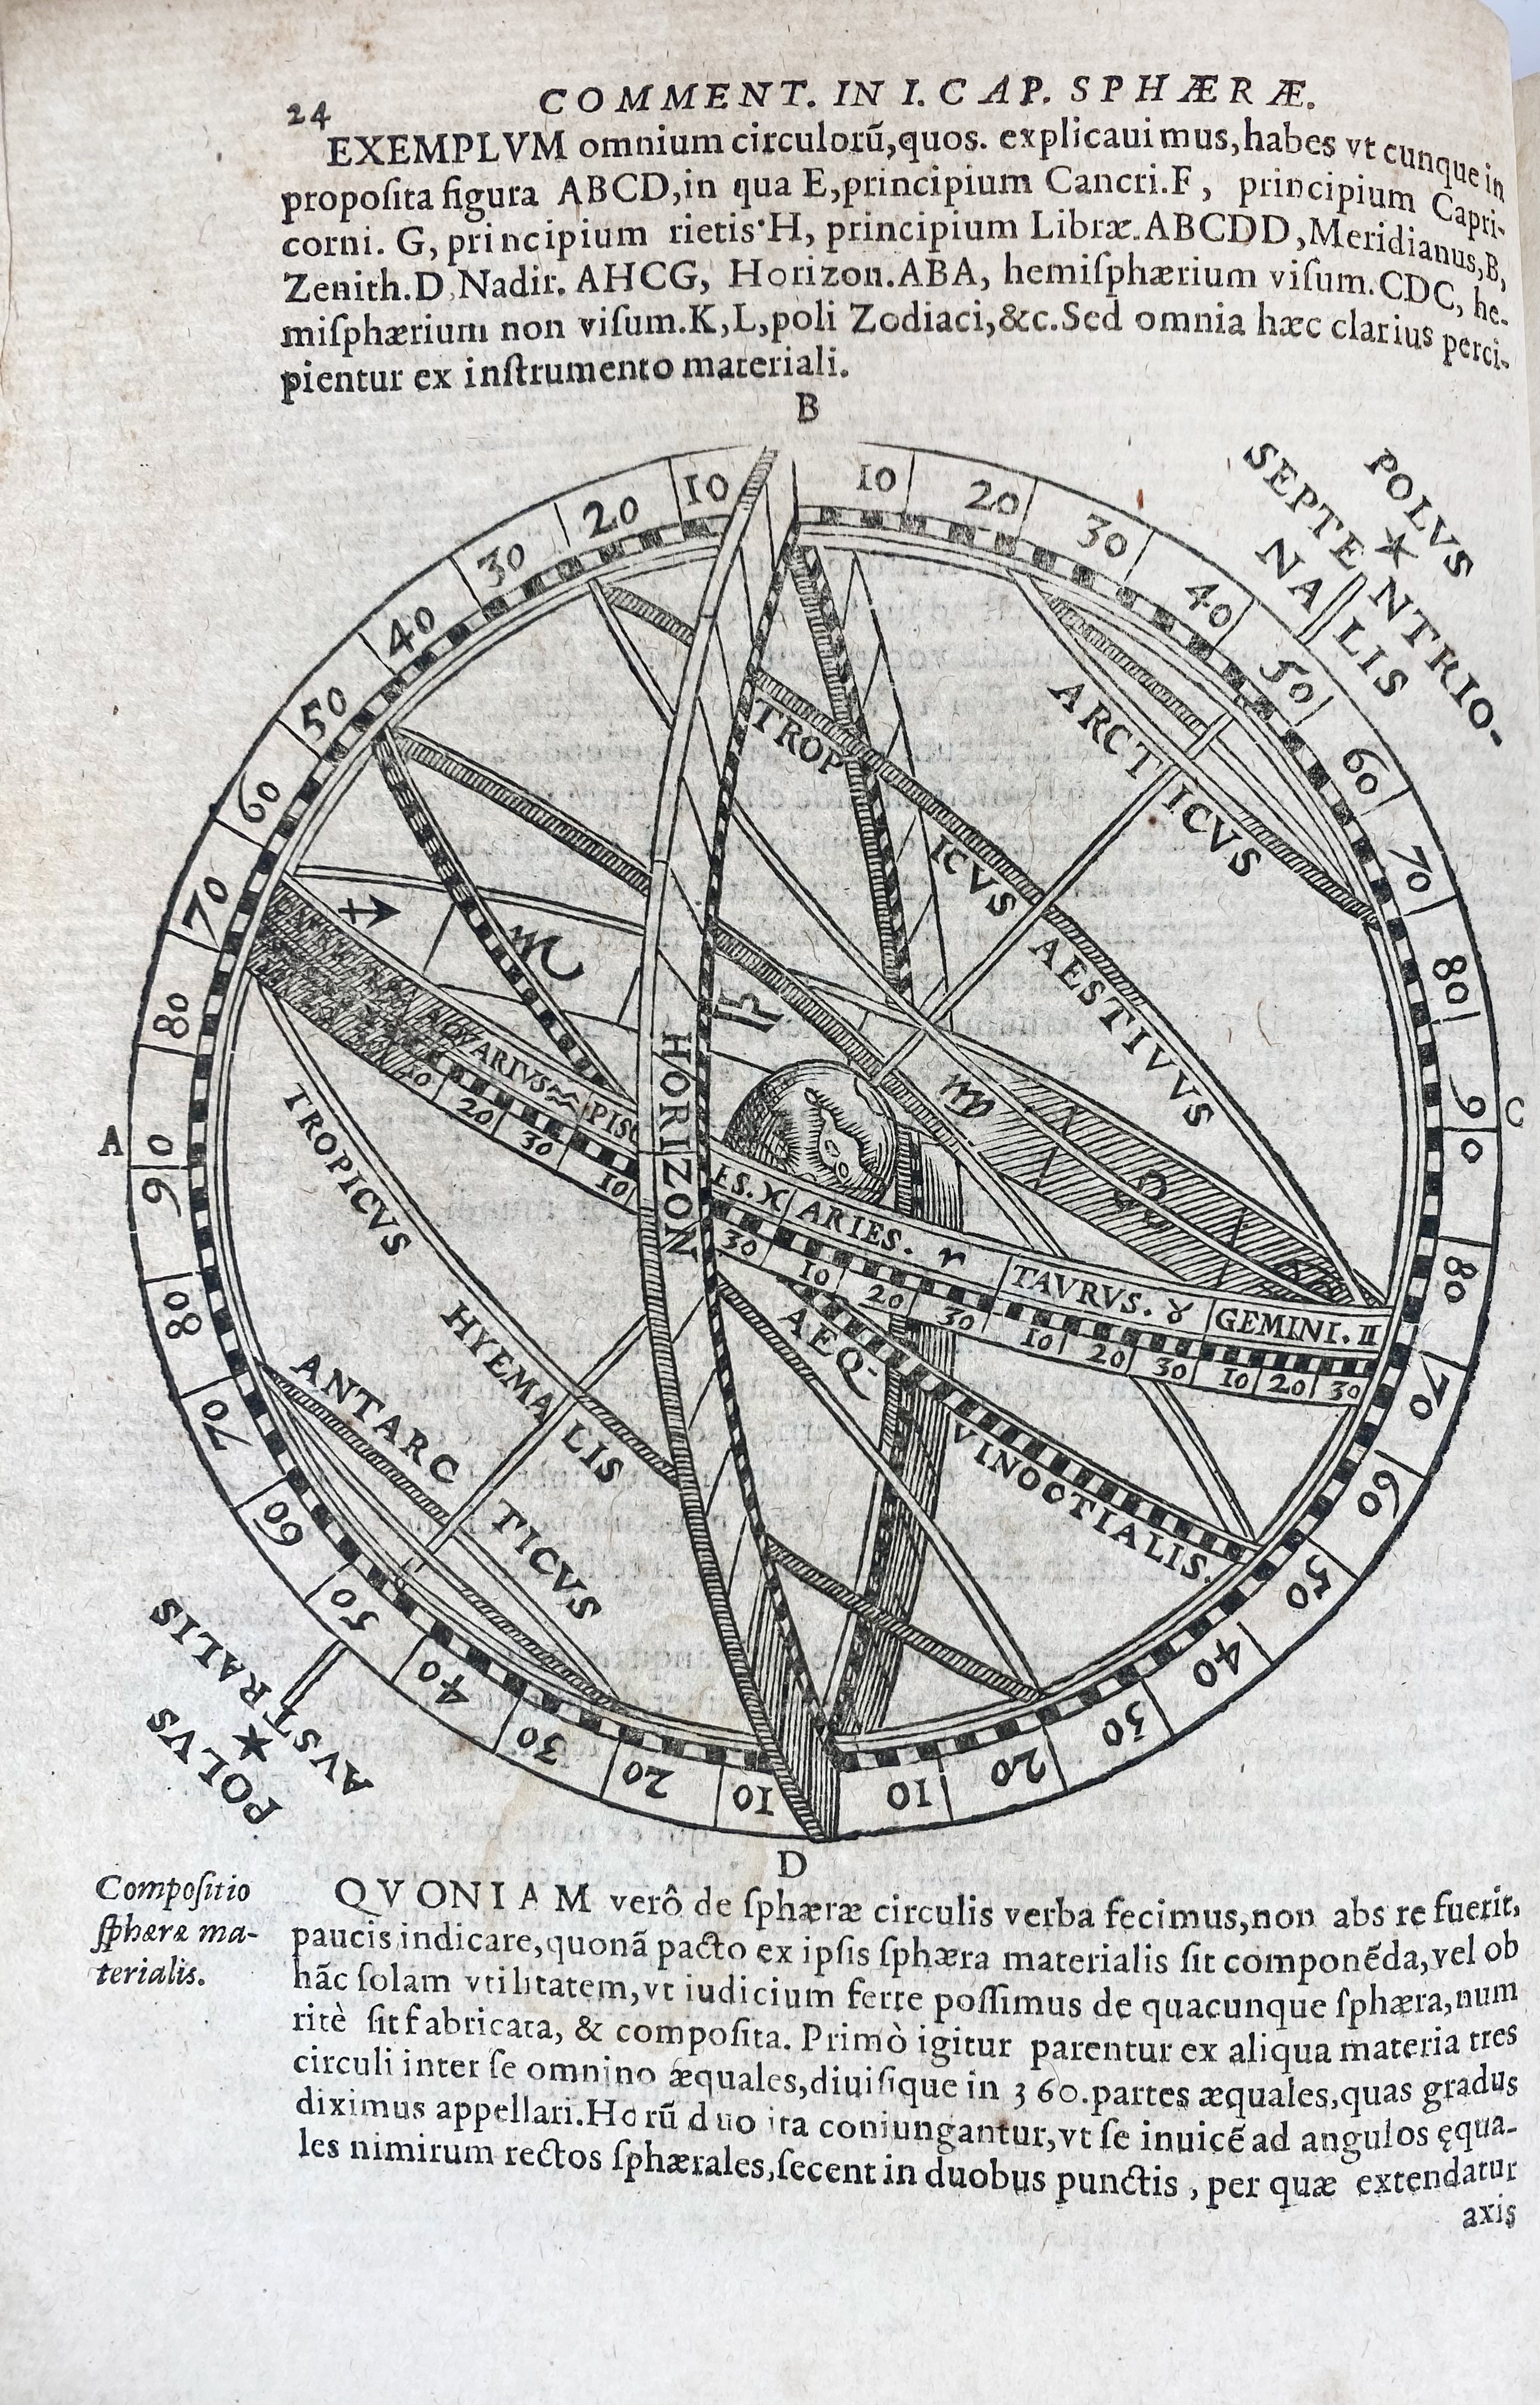 24 COMMENT. IN I. CAP. SPHÆRÆ.
EXEMPLVM omnium circulorũ,quos. explicauimus,habes vt cunque in
proposita figura ABCD,in qua E,principium Cancri.F, principium Capri-
corni. G, principium rietis·H, principium Libræ.ABCDD,Meridianus,B,
Zenith.D,Nadir. AHCG, Horizon.ABA, hemisphærium visum.CDC, he-
misphærium non visum.K,L,poli Zodiaci,&c.Sed omnia hæc clarius perci-
pientur ex instrumento materiali.
B
10 20 30 40 50 60 70 80 90
10 20 30 40 50 60 70 80 90
POLVS
SEPTENTRIO-
NALIS
ARCTICVS
TROPICVS AESTIVVS
♐ ♏ ♎ ♍ ♋
HORIZON
A
C
AQVARIVS ♒ PISCES. ♓ ARIES. ♈ TAVRVS. ♉ GEMINI. ♊
10 20 30 10 30 10 20 30 10 20 30 10 20 30
AEQ-
VINOCTIALIS.
TROPICVS HYEMALIS
ANTARCTICVS
80 70 60 50 40 30 20 10
80 70 60 50 40 30 20 10
AVSTRALIS
POLVS
D
Compositio
sphæræ ma-
terialis.
QVONIAM verô de sphæræ circulis verba fecimus,non abs re fuerit,
paucis indicare,quonã pacto ex ipsis sphæra materialis sit componẽda,vel ob
hãc solam vtilitatem,vt iudicium ferre possimus de quacunque sphæra,num
ritè sit fabricata, & composita. Primò igitur parentur ex aliqua materia tres
circuli inter se omnino æquales,diuisique in 360.partes æquales,quas gradus
diximus appellari.Horũ duo ita coniungantur,vt se inuicẽ ad angulos ęqua-
les nimirum rectos sphærales,secent in duobus punctis , per quæ extendatur
axis